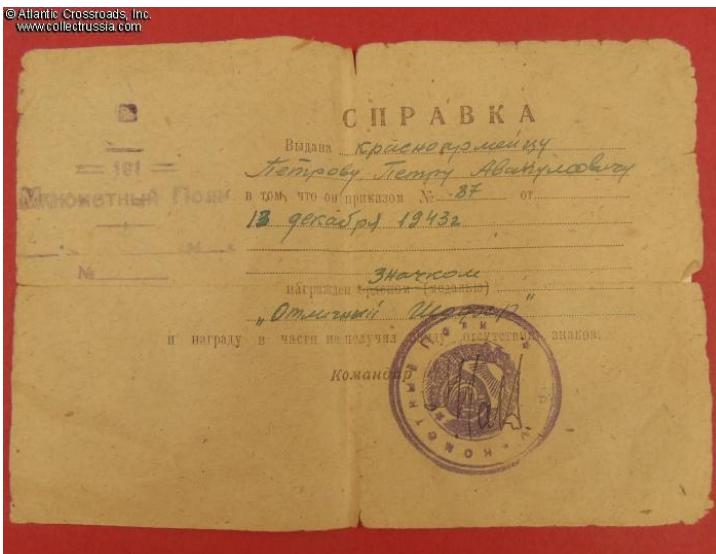 © Atlantic Crossroads, Inc.
www.collectrussia.com
СПРАВКА
Выдана красноармейцу
Петрову Петру Авакумовичу
в том, что он приказом № 87 от
13 декабря 1943г
значком
награжден орденом (медалью)
„Отличный Шофер"
и награду в части не получил ввиду отсутствия знаков.
Командир
= 181 =
Минометный Полк
№